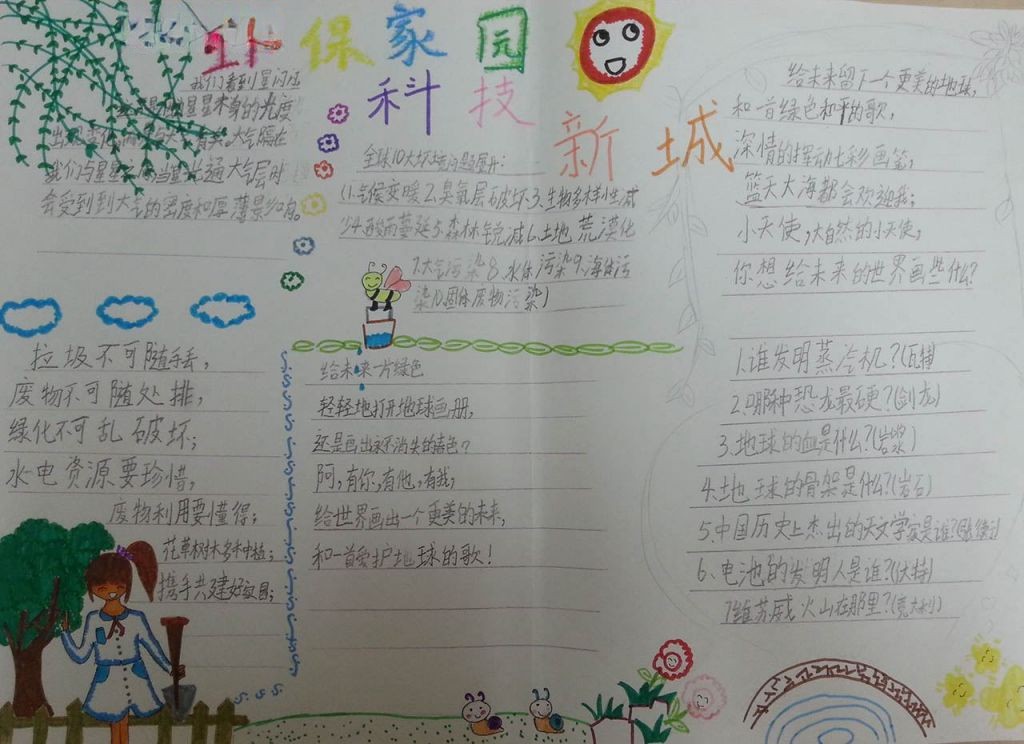 环保家园
科技
新城
我们看到星闪烁
星星本身的光度
大气隔在
我们与星星 当星光通大气层时
会受到到大气的密度和厚薄影响。
全球10大环境问题展开:
(1.气候变暖2.臭氧层破坏3.生物多样性减
少4.酸雨蔓延5.森林锐减6.土地荒漠化
7.大气污染8.水体污染9.海洋污
染10.固体废物污染)
垃圾不可随手丢,
废物不可随处排,
绿化不可乱破坏;
水电资源要珍惜,
废物利用要懂得;
花草树木多种植;
携手共建好家园;
给未来一片绿色
轻轻地打开地球画册,
还是画出永不消失的春色?
阿,有你,有他,有我,
给世界画出一个更美的未来,
和一首爱护地球的歌!
给未来留下一个更美的地球,
和一首绿色和平的歌,
深情的挥动七彩画笔,
蓝天大海都会欢迎我;
小天使,大自然的小天使,
你想给未来的世界画些什么?
1.谁发明蒸汽机?(瓦特)
2.哪种恐龙最硬?(剑龙)
3.地球的血是什么?(岩浆)
4.地球的骨架是什么?(岩石)
5.中国历史上杰出的天文学家是谁?
6.电池的发明人是谁?(伏特)
7维苏威火山在那里?(意大利)